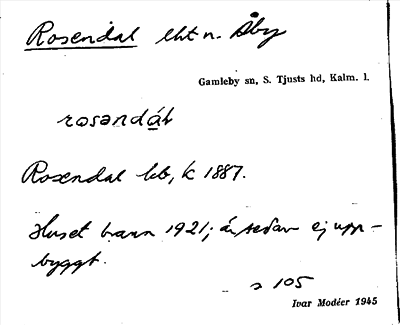 Rosendal lht n. Åby
Gamleby sn, S. Tjusts hd, Kalm. l.
rosəndɑ̀l
Rosendal lht, k 1887.
Huset brann 1921; är sedan ej upp-
byggt.
s 105
Ivar Modéer 1945